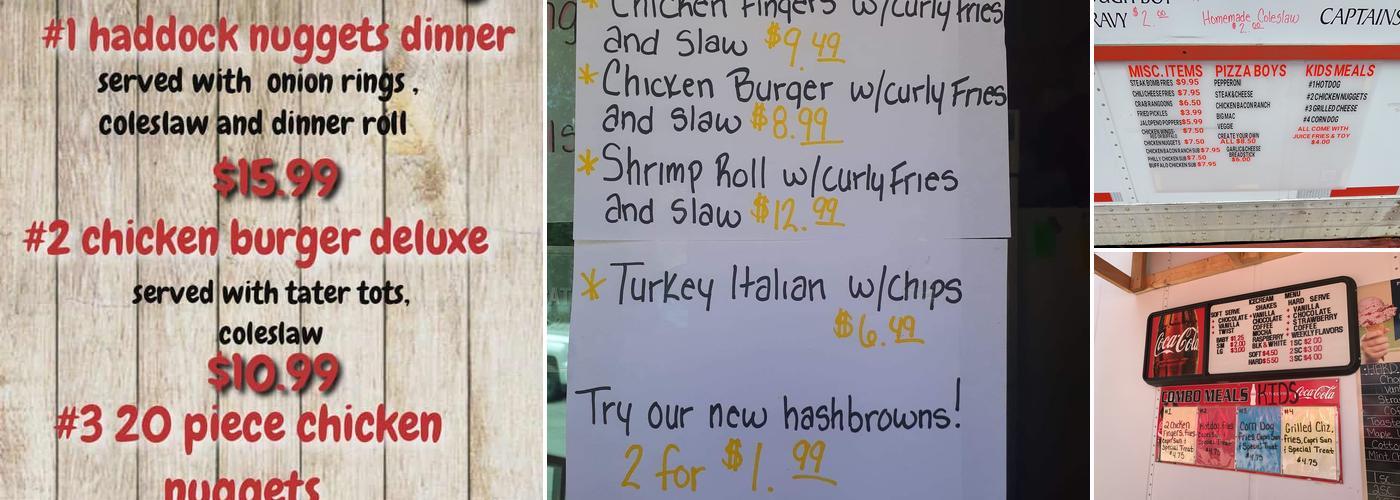 #1 haddock nuggets dinner
served with onion rings,
coleslaw and dinner roll
$15.99
#2 chicken burger deluxe
served with tater tots,
coleslaw
$10.99
#3 20 piece chicken
nuggets
* Chicken Fingers w/curly fries
and slaw $9.49
* Chicken Burger w/curly Fries
and slaw $8.99
* Shrimp Roll w/curly Fries
and slaw $12.99
* Turkey Italian w/chips
$6.49
Try our new hashbrowns!
2 for $1.99
$2.00 Homemade Coleslaw CAPTAINS
$2.00
MISC. ITEMS
STEAK BOMB FRIES $9.95
CHILI CHEESE FRIES $7.95
CRAB RANGOONS $6.50
FRIED PICKLES $3.99
JALAPENO POPPERS $5.99
CHICKEN WINGS $7.50
CHICKEN NUGGETS $7.50
CHICKEN BACON RANCH SUB $7.95
PHILLY CHICKEN SUB $7.50
BUFFALO CHICKEN SUB $7.95
PIZZA BOYS
PEPPERONI
STEAK & CHEESE
CHICKEN BACON RANCH
BIG MAC
VEGGIE
CREATE YOUR OWN
ALL $8.50
GARLIC & CHEESE
BREADSTICK
$6.00
KIDS MEALS
#1 HOTDOG
#2 CHICKEN NUGGETS
#3 GRILLED CHEESE
#4 CORN DOG
ALL COME WITH
JUICE FRIES & TOY
$4.00
Coca-Cola
ICECREAM MENU
SOFT SERVE
CHOCOLATE
VANILLA
TWIST
BABY $1.25
SM $2.00
LG $3.00
SHAKES
VANILLA
CHOCOLATE
COFFEE
MOCHA
RASPBERRY
BLK & WHITE
SOFT $4.50
HARD $5.50
HARD SERVE
VANILLA
CHOCOLATE
STRAWBERRY
COFFEE
WEEKLY FLAVORS
1SC $2.00
2SC $3.00
3SC $4.00
COMBO MEALS KIDS Coca-Cola
#1
2 Chicken
Fingers, Fries
Special Treat
$4.75
#2
Hotdog, Fries
#3
Corn Dog
Fries, Capri Sun
& Special Treat
$4.75
#4
Grilled Chz.
Fries, Capri Sun
& Special Treat
$4.75